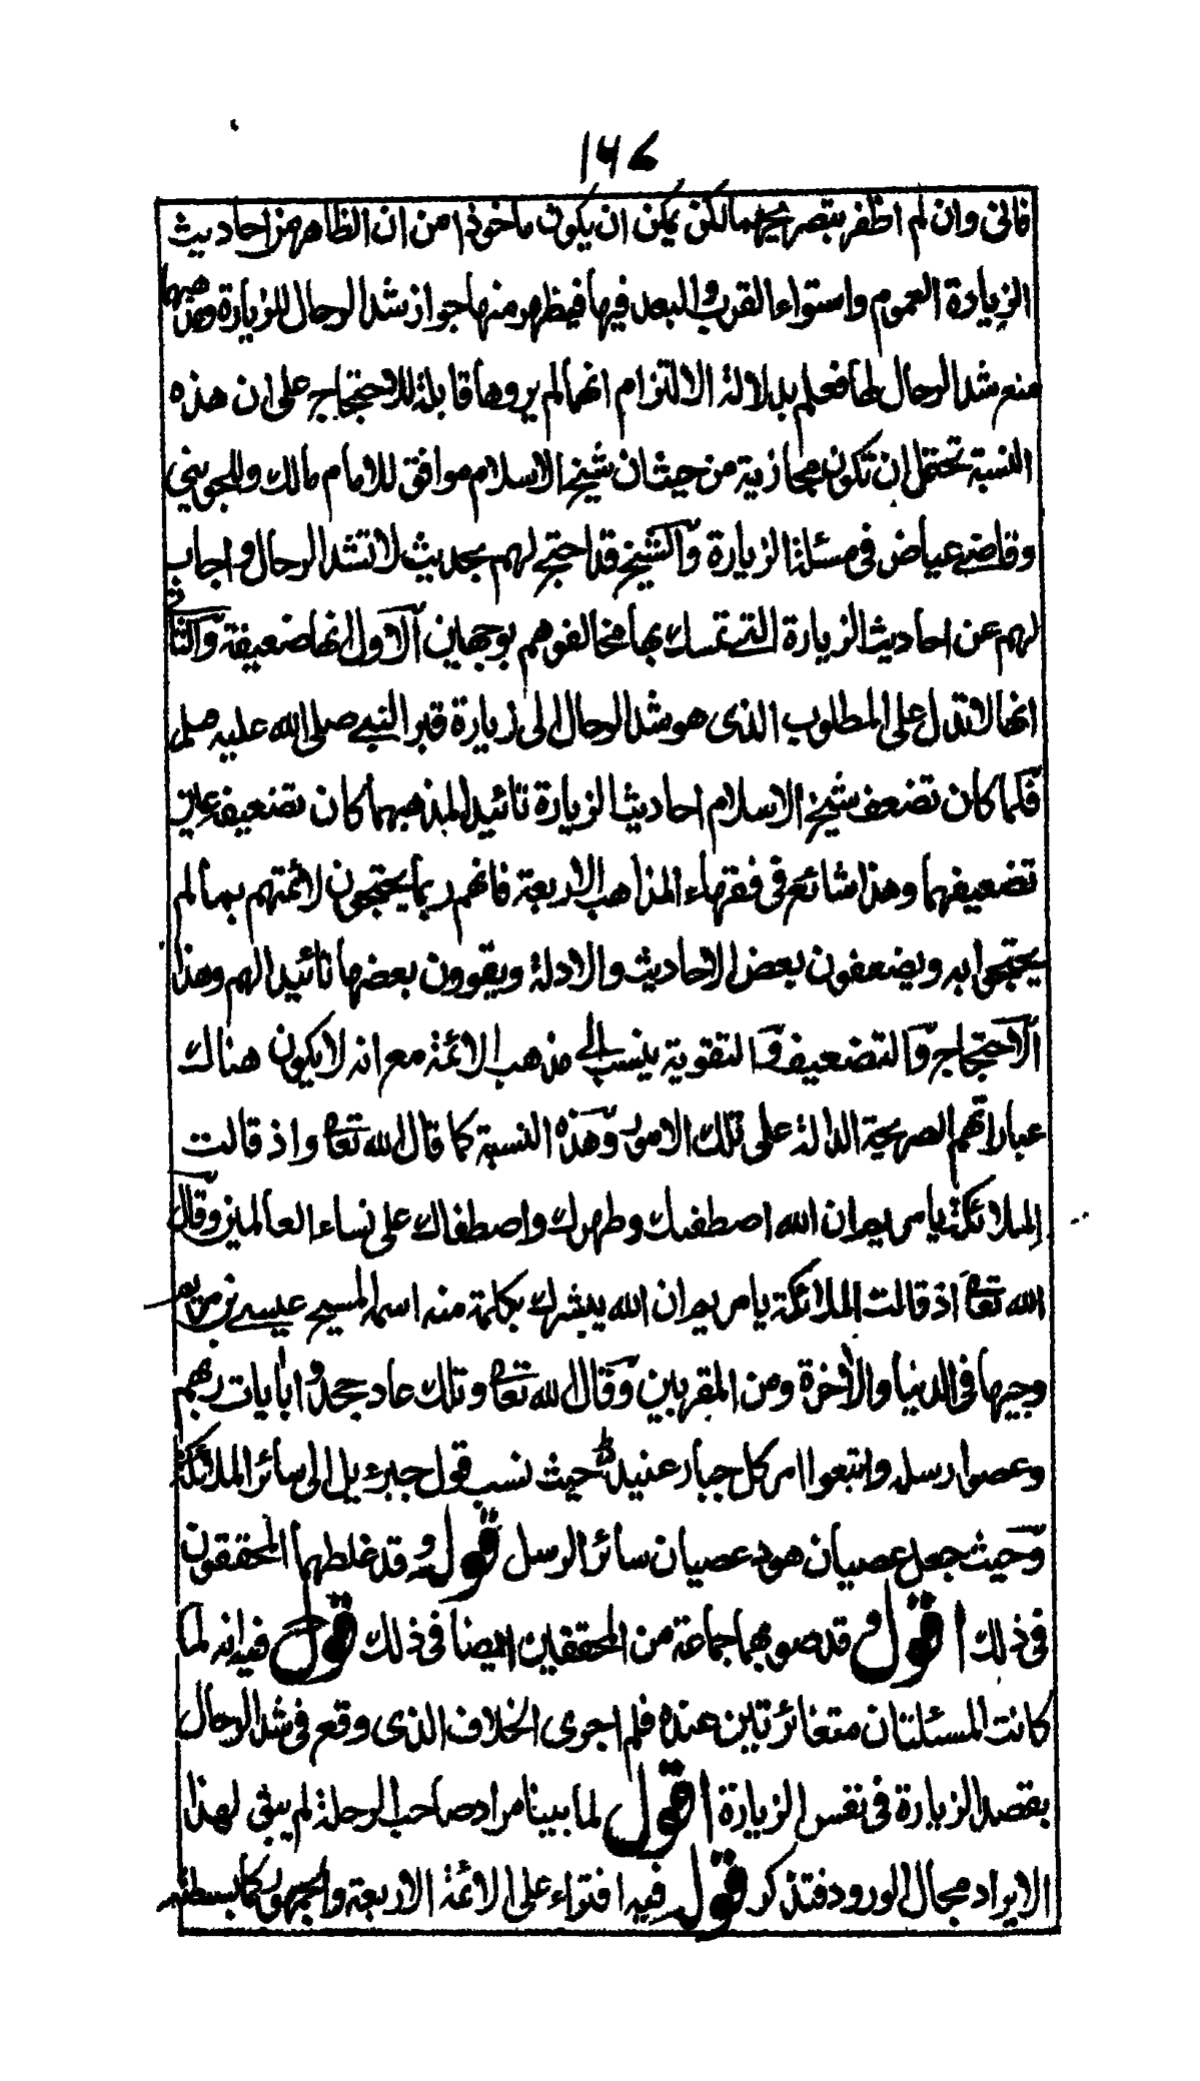 ۱۶۷
فانی وان لم اظفر بتصریحهما لکن یمکن ان یکون ماخوذا من ان الظاهر من احادیث
الزیادة العموم واستواء القرب والبعد فیها فیظهر منها جواز شد الرحال للزیارة ومذهبهما
منع شد الرحال لها فعلم بدلالة الالتزام انهما لم یروها قابلة للاحتجاج علی ان هذه
النسبة تحتمل ان تکون مجازیة من حیث ان شیخ الاسلام موافق للامام مالك والجوینی
وقاضی عیاض فی مسئلة الزیارة والشیخ قد احتج لهم بحدیث لا تشد الرحال واجاب
لهم عن احادیث الزیارة التی تمسك بها مخالفوهم بوجهین الاول انها ضعیفة والثانی
انها لا تدل علی المطلوب الذی هو شد الرحال الی زیارة قبر النبی صلی الله علیه
فلما کان تضعف شیخ الاسلام احادیث الزیارة تائیدا لمذهبهما کان تضعیفه عین
تضعیفهما وهذا شائع فی فقهاء المذاهب الاربعة فانهم ربما یحتجون لائمتهم بما لم
یحتجوا به ویضعفون بعض الاحادیث والادلة ویقوون بعضها تائیدا لهم وهذا
الاحتجاج والتضعیف والتقویة ینسب الی مذهب الائمة مع انه لا یکون هناك
عباراتهم الصریحة الدالة علی تلك الامور وهذه النسبة کما قال الله تعالی واذ قالت
الملائکة یامریم ان الله اصطفك وطهرك واصطفاك علی نساء العالمین وقال
الله تعالی اذ قالت الملائکة یامریم ان الله یبشرك بکلمة منه اسمه المسیح عیسی بن مریم
وجیها فی الدنیا والآخرة ومن المقربین وقال الله تعالی وتلك عاد جحدوا بآیات ربهم
وعصوا رسله واتبعوا امر کل جبار عنید حیث نسب قول جبرءیل الی سائر الملائکة
وحیث جعل عصیان هود عصیان سائر الرسل قوله وقد غلطهما المحققون
فی ذلك اقول وقد صوبهما جماعة من المحققین ایضا فی ذلك قوله فیه انه لما
کانت المسئلتان متغائرتین عنده فلم اجری الخلاف الذی وقع فی شد الرحال
بقصد الزیارة فی نفس الزیارة اقول لما بینا مراد صاحب الرحلة لم یبق لهذا
الایراد مجال الورود فتذکر قوله فیه افتراء علی الائمة الاربعة والجمهور کما بسطته